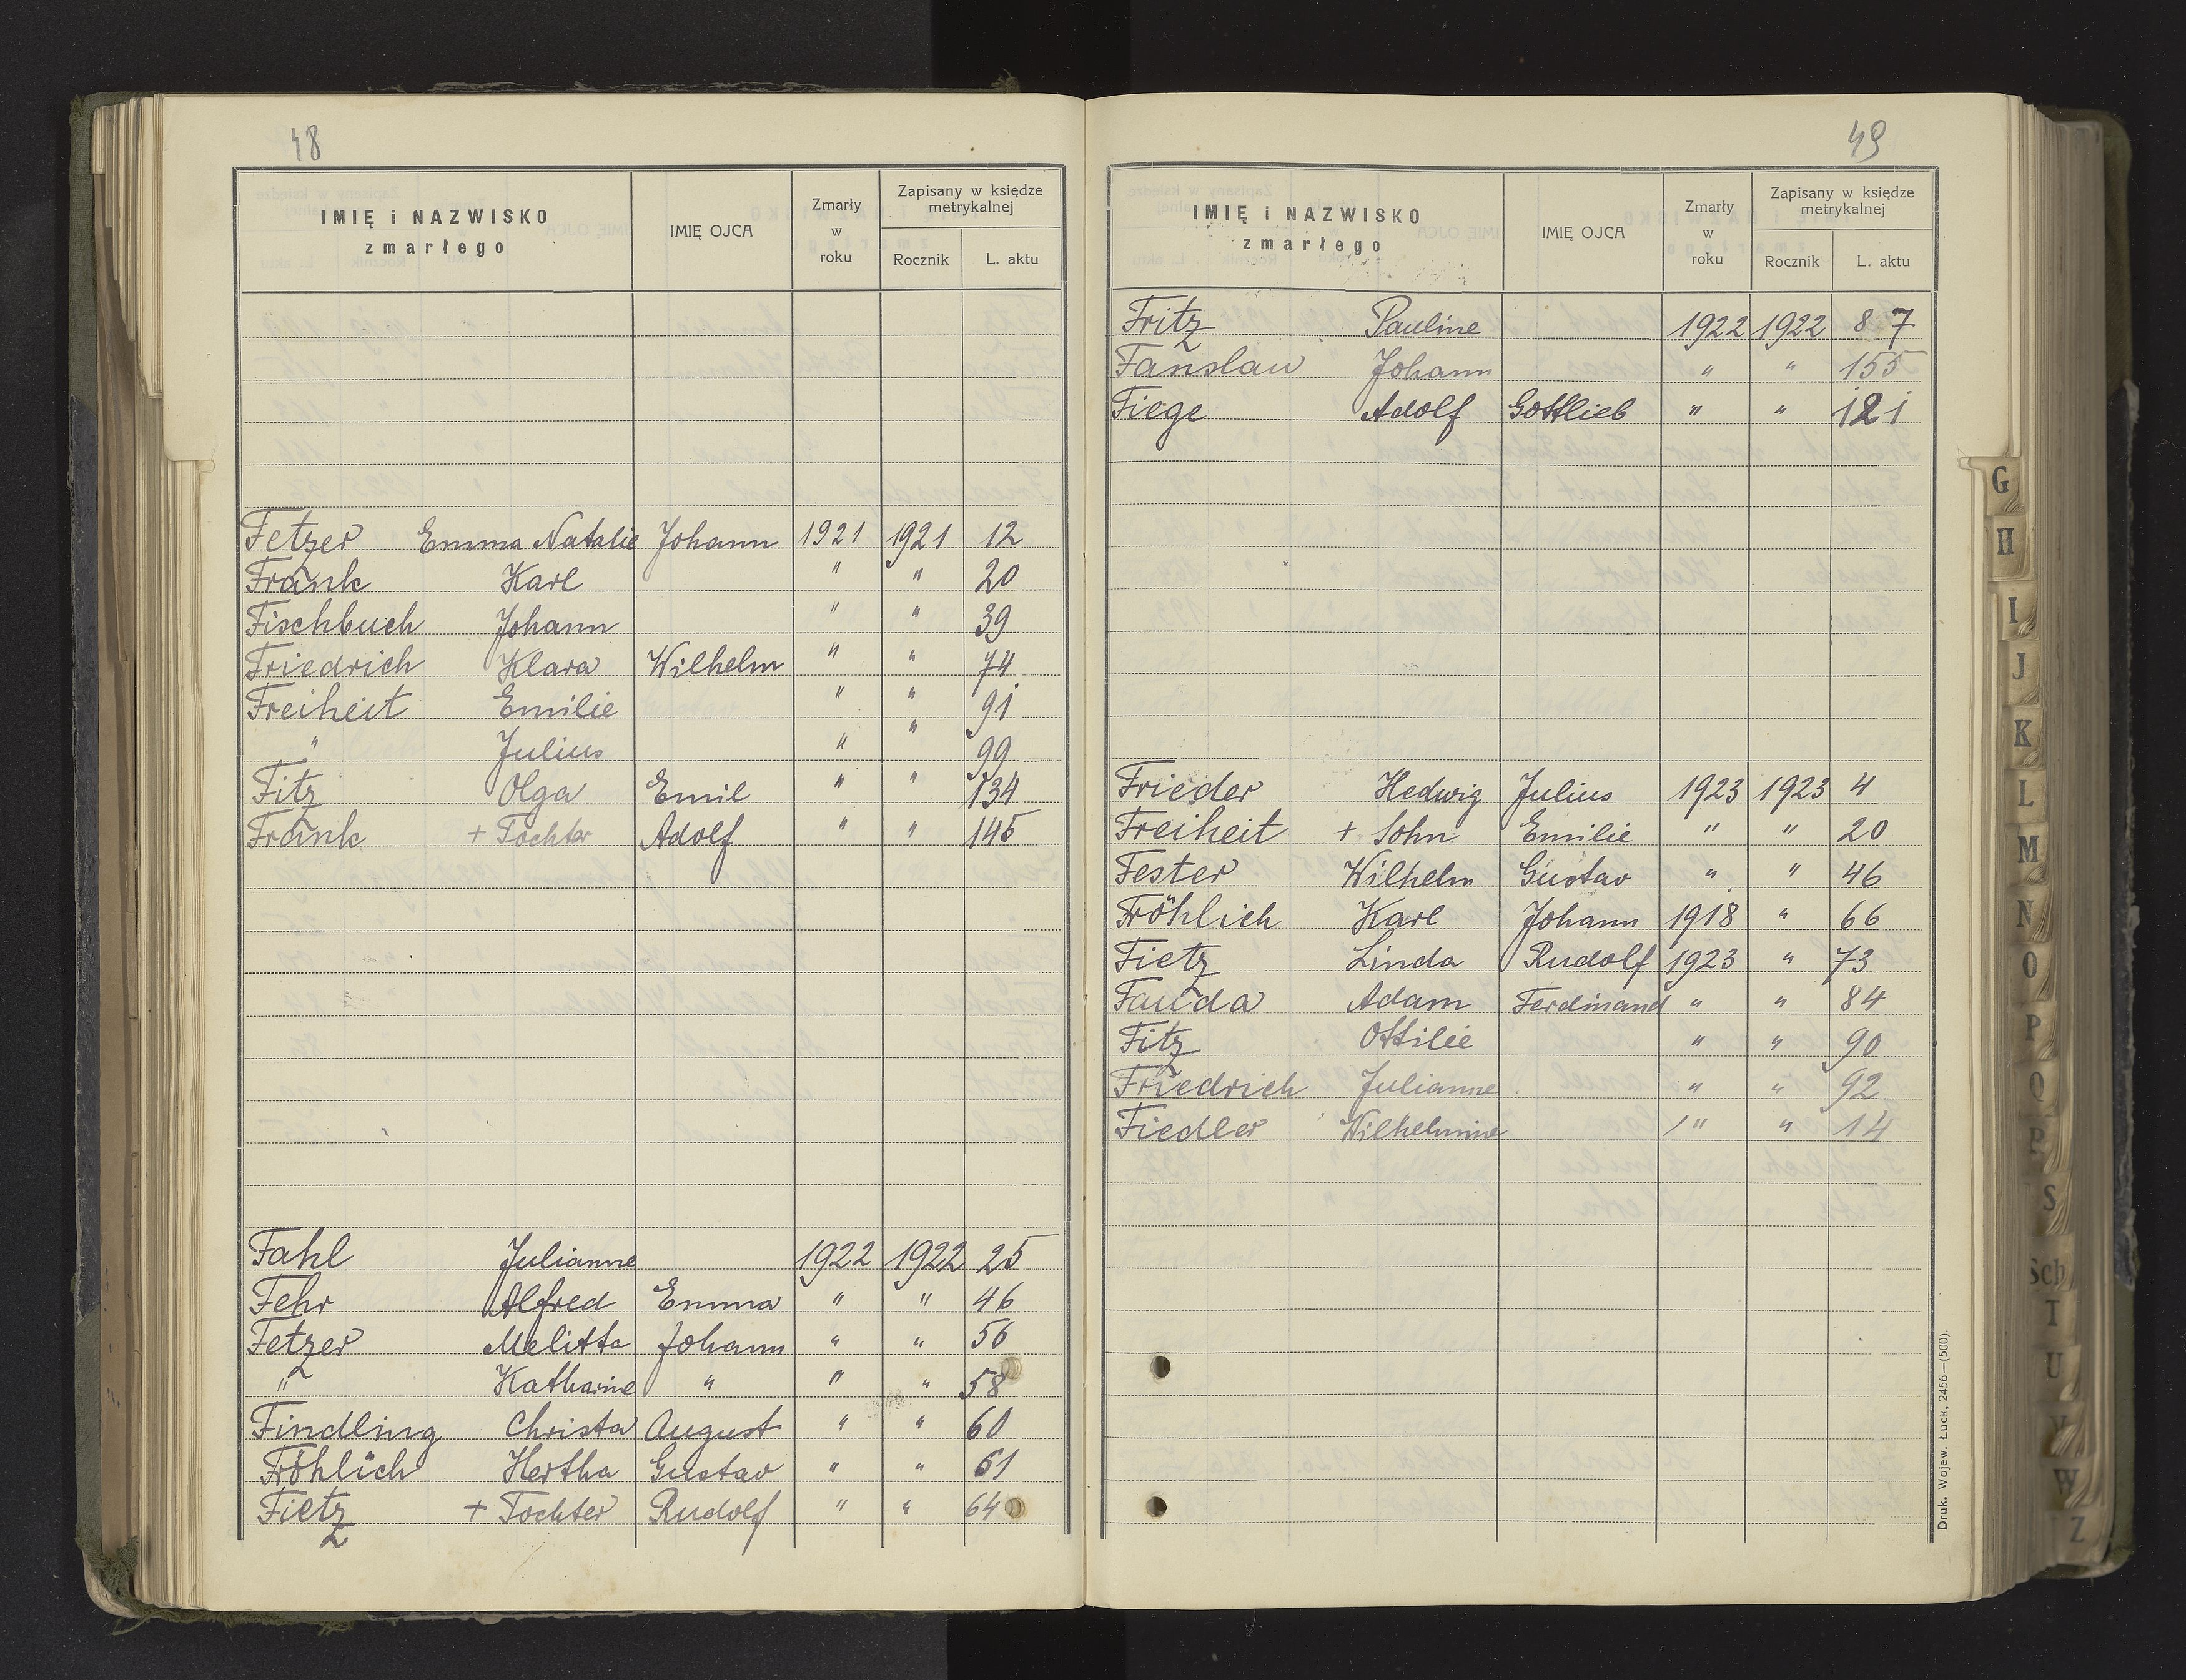 48
IMIĘ i NAZWISKO zmarłego IMIĘ OJCA Zmarły w roku Zapisany w księdze metrykalnej Rocznik L. aktu
Fetzer Emma Natalie Johann 1921 1921 12
Frank Karl " " 20
Fischbuch Johann " " 39
Friedrich Klara Wilhelm " " 74
Freiheit Emilie " " 91
" Julius " " 99
Fitz Olga Emil " " 134
Frank + Tochter Adolf " " 145
Fahl Julianne 1922 1922 25
Fehr Alfred Emma " " 46
Fetzer Melitta Johann " " 56
" Katharine " " " 58
Findling Christa August " " 60
Fröhlich Hertha Gustav " " 61
Fietz + Tochter Rudolf " " 64
49
IMIĘ i NAZWISKO zmarłego IMIĘ OJCA Zmarły w roku Zapisany w księdze metrykalnej Rocznik L. aktu
Fritz Pauline 1922 1922 87
Fanslau Johann " " 155
Fiege Adolf Gottlieb " " 121
Frieder Hedwig Julius 1923 1923 4
Freiheit + Sohn Emilie " " 20
Fester Wilhelm Gustav " " 46
Fröhlich Karl Johann 1918 " 66
Fietz Linda Rudolf 1923 " 73
Fauda Adam Ferdinand " " 84
Fitz Ottilie " " 90
Friedrich Julianne " " 92
Fiedler Wilhelmine " " 14
Druk. Wojew. Łuck, 2456—(500).
G
H
I
J
K
L
M
N
O
P
Q
R
S
Sch
T
U
V
W
Z